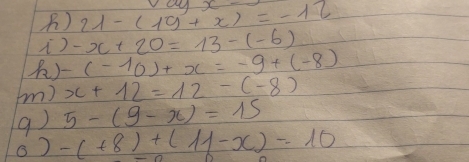 h) 21 - (19 + x) = -12
i) -x + 20 = 13 - (-6)
k) - (-10) + x = -9 + (-8)
m) x + 12 = 12 - (-8)
q) 5 - (9 - x) = 15
o) - (+8) + (11 - x) = 10